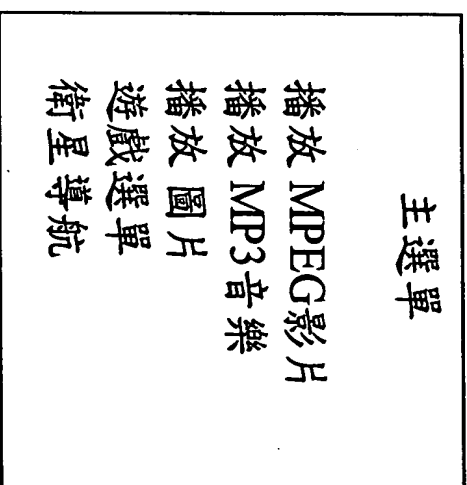 主選單
播放 MPEG影片
播放 MP3音樂
播放 圖片
遊戲選單
衛星導航